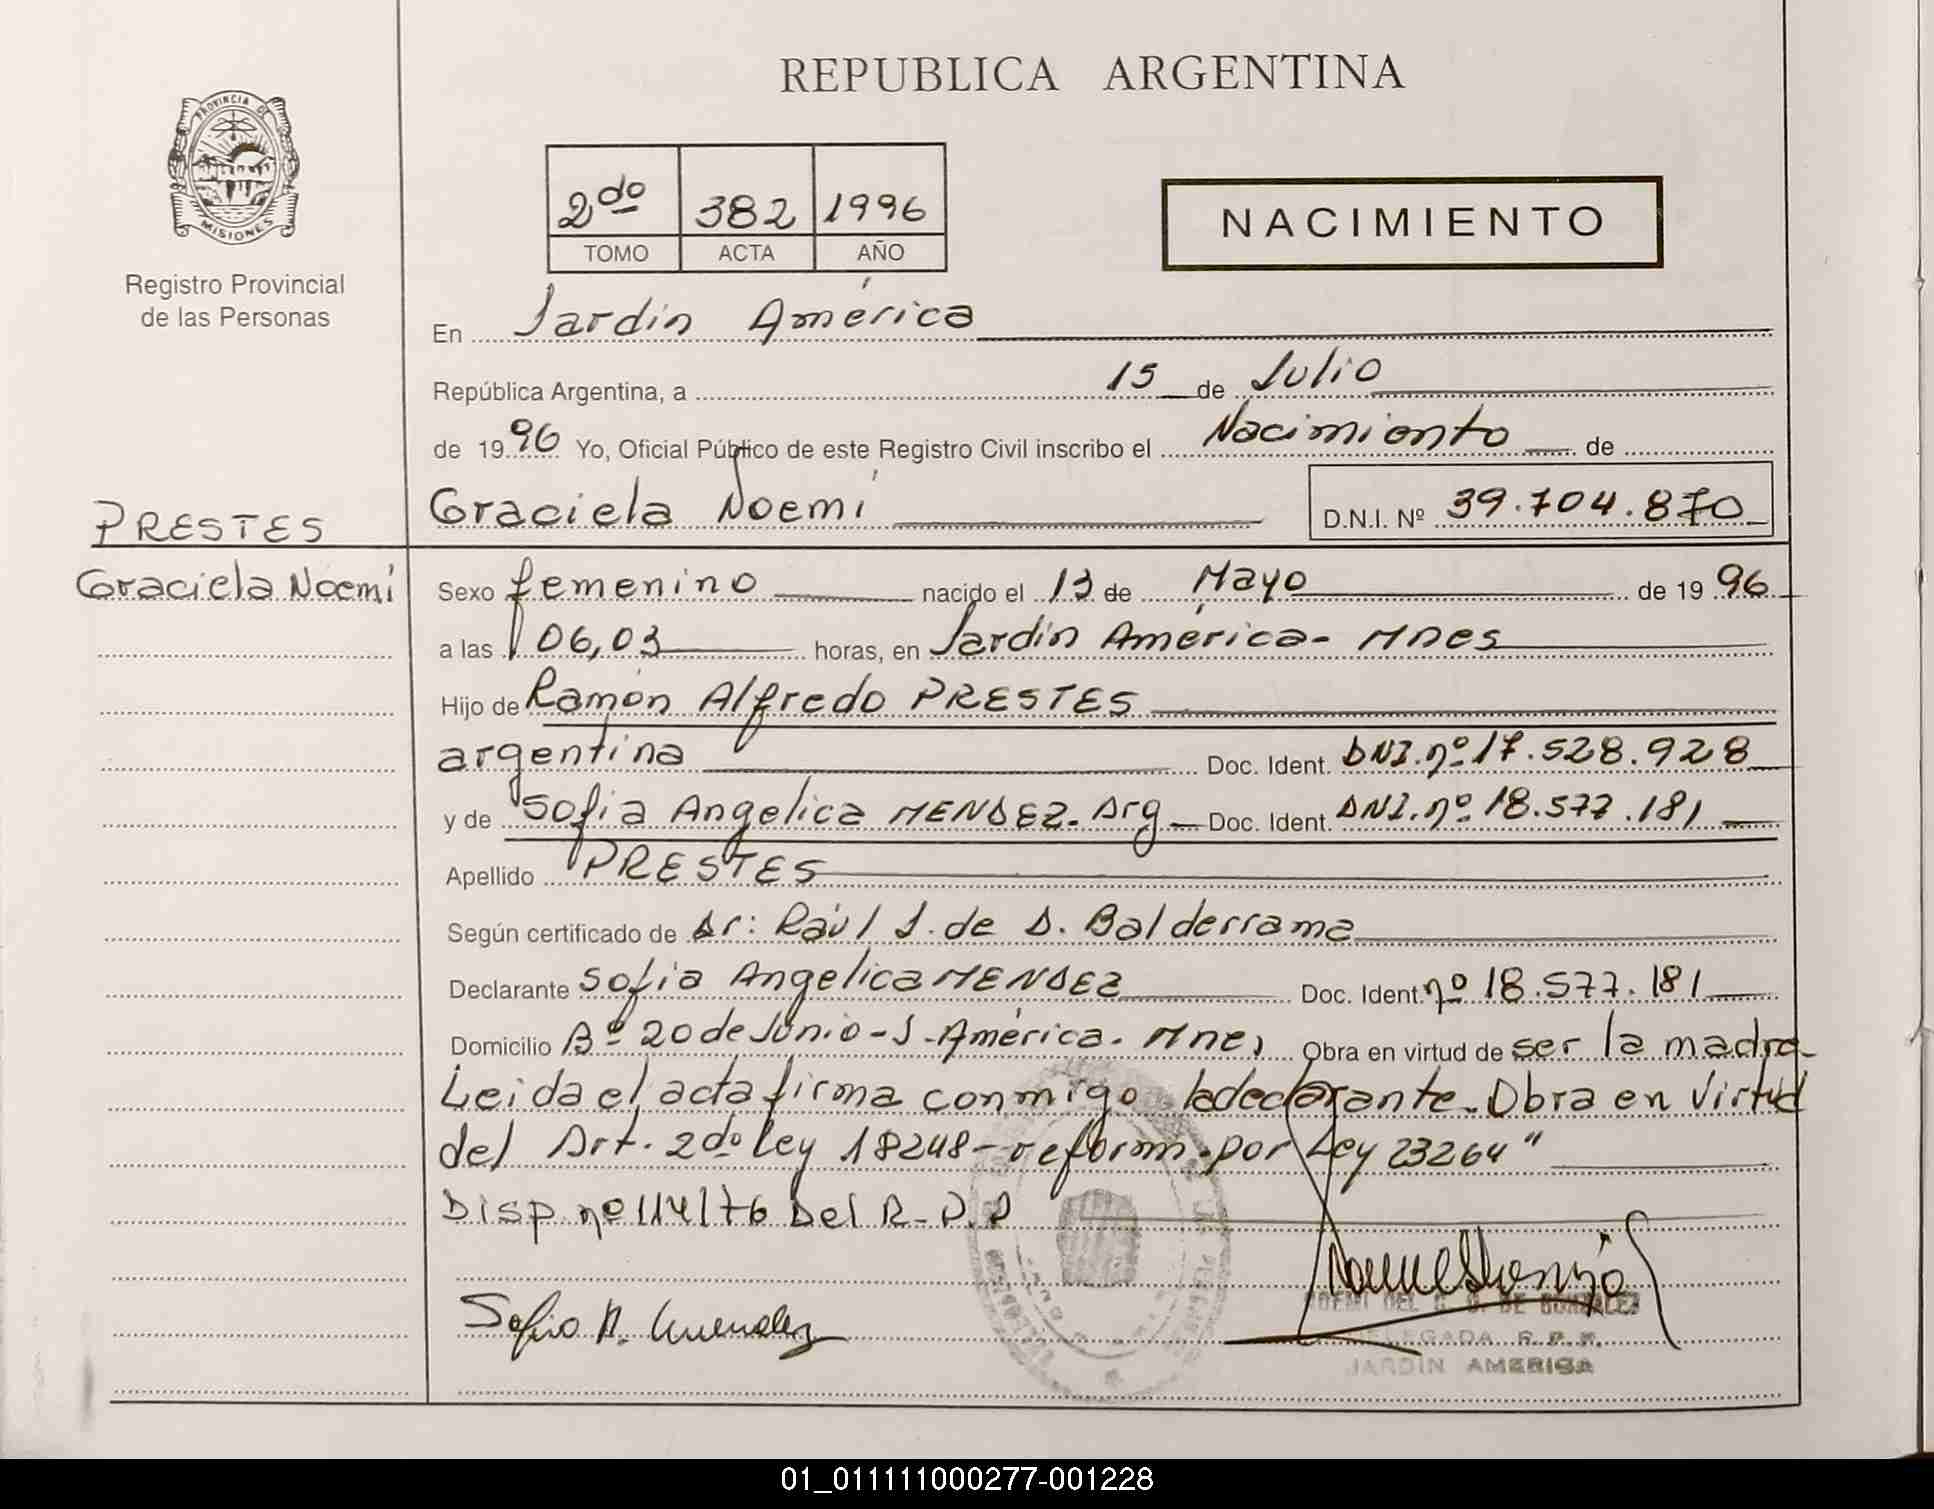 REPUBLICA ARGENTINA
PROVINCIA DE
MISIONES
Registro Provincial
de las Personas
2do 382 1996
TOMO ACTA AÑO
NACIMIENTO
En Jardín América
República Argentina, a 15 de Julio
de 1996 Yo, Oficial Público de este Registro Civil inscribo el Nacimiento de
Graciela Noemí D.N.I. Nº 39.704.870
PRESTES
Graciela Noemí
Sexo femenino nacido el 13 de Mayo de 1996
a las 06,03 horas, en Jardín América- Mnes
Hijo de Ramón Alfredo PRESTES
argentina Doc. Ident. DNI.nº 17.528.928
y de Sofia Angelica MENDEZ- Arg Doc. Ident. DNI.nº 18.577.181
Apellido PRESTES
Según certificado de Dr: Raúl J. de D. Balderrama
Declarante Sofia Angelica MENDEZ Doc. Ident. nº 18.577.181
Domicilio Bº 20 de Junio - J. América. Mnes Obra en virtud de ser la madre
Leida el acta firma conmigo la declarante. Obra en virtud
del Art. 2do Ley 18248- reform. por Ley 23264"
Disp nº 114/76 Del R.P.P
Sofia A. Mendez
NOEMI DEL DE GONZALEZ
DELEGADA R.P.P.
JARDIN AMERICA
01_011111000277-001228